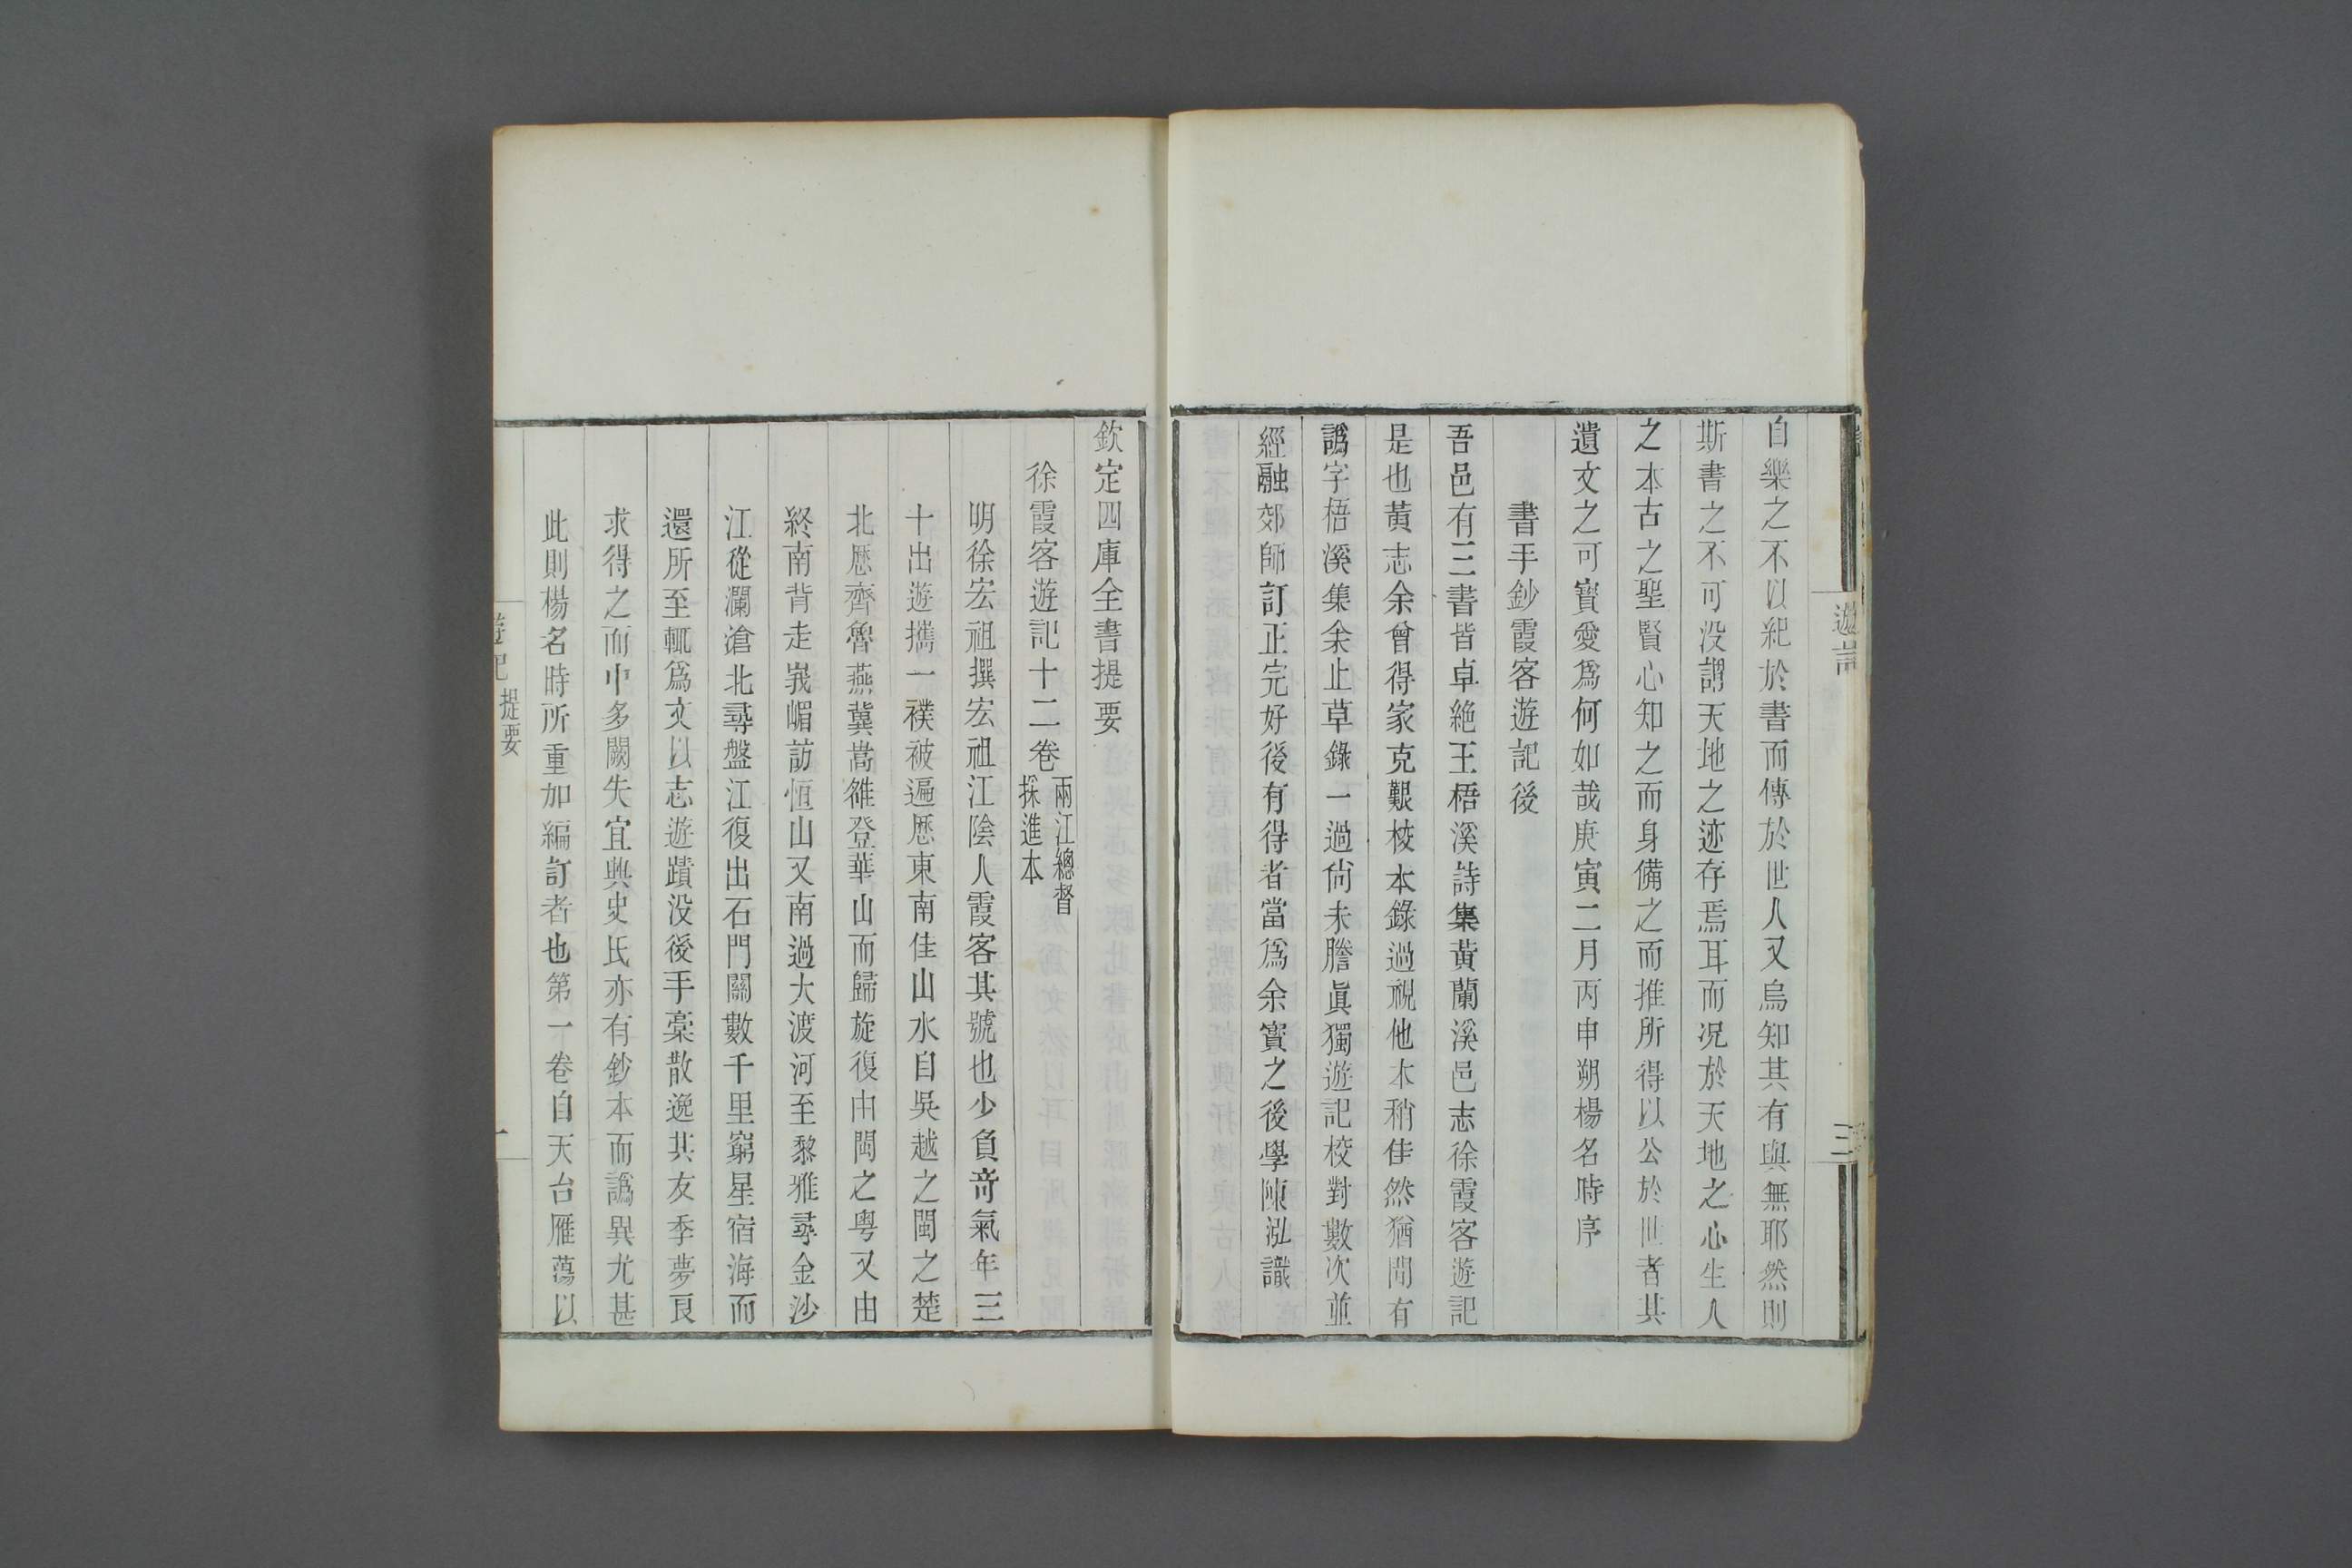 遊記
三
自樂之不以紀於書而傳於世人又烏知其有與無耶然則
斯書之不可没謂天地之迹存焉耳而况於天地之心生人
之本古之聖賢心知之而身備之而推所得以公於世者其
遺文之可寶愛爲何如哉庚寅二月丙申朔楊名時序
書手鈔霞客遊記後
吾邑有三書皆卓絶王梧溪詩集黃蘭溪邑志徐霞客遊記
是也黃志余曾得家克艱校本錄過視他本稍佳然猶間有
譌字梧溪集余止草錄一過尙未謄眞獨遊記校對數次並
經融郊師訂正完好後有得者當爲余寶之後學陳泓識
欽定四庫全書提要
徐霞客遊記十二卷兩江總督
採進本
明徐宏祖撰宏祖江陰人霞客其號也少負竒氣年三
十出遊攜一襆被遍歷東南佳山水自吳越之閩之楚
北歷齊魯燕冀嵩雒登華山而歸旋復由閩之粤又由
終南背走峩嵋訪恒山又南過大渡河至黎雅尋金沙
江從瀾滄北尋盤江復出石門關數千里窮星宿海而
還所至輒爲文以志遊蹟没後手稾散逸其友季夢良
求得之而中多闕失宜興史氏亦有鈔本而譌異尤甚
此則楊名時所重加編訂者也第一卷自天台雁蕩以
遊記 提要
一